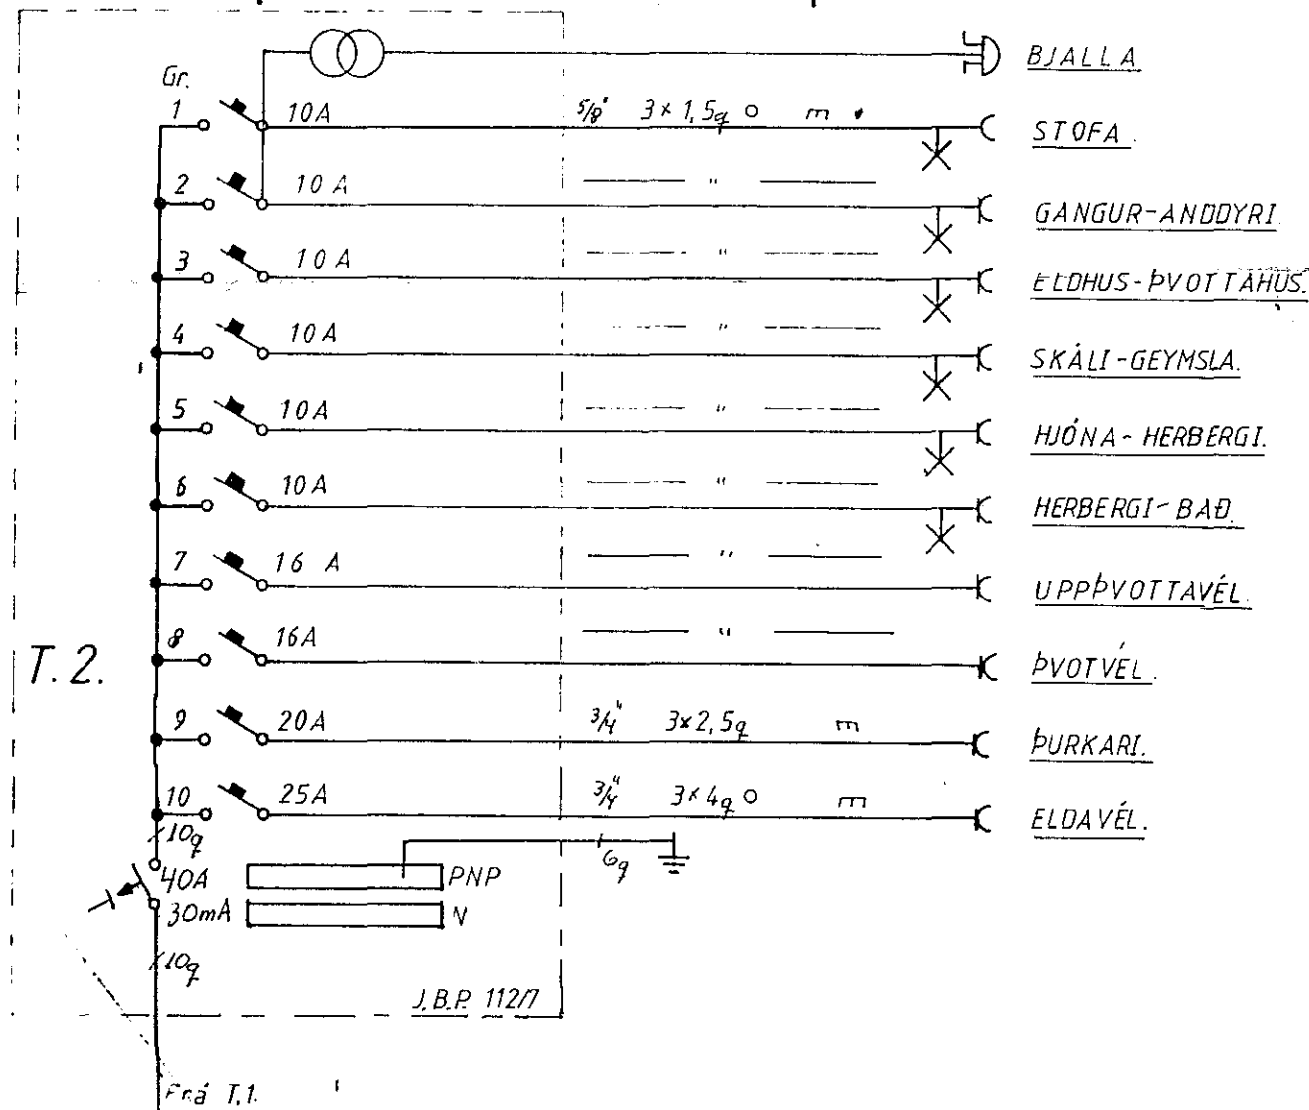 BJALLA
Gr.
1 10A 5/8" 3 x 1,5q STOFA.
2 10A " GANGUR-ANDDYRI.
3 10A " ELDHUS-ÞVOTTAHÚS.
4 10A " SKÁLI-GEYMSLA.
5 10A " HJÓNA-HERBERGI.
6 10A " HERBERGI-BAÐ.
7 16 A " UPPÞVOTTAVÉL.
8 16A " ÞVOTVÉL.
T. 2.
9 20A 3/4" 3x2,5q ÞURKARI.
10 25A 3/4" 3x4q ELDAVÉL.
10q
6q
40A PNP
30mA N
10q
J.B.P. 112/7
Frá T.1.